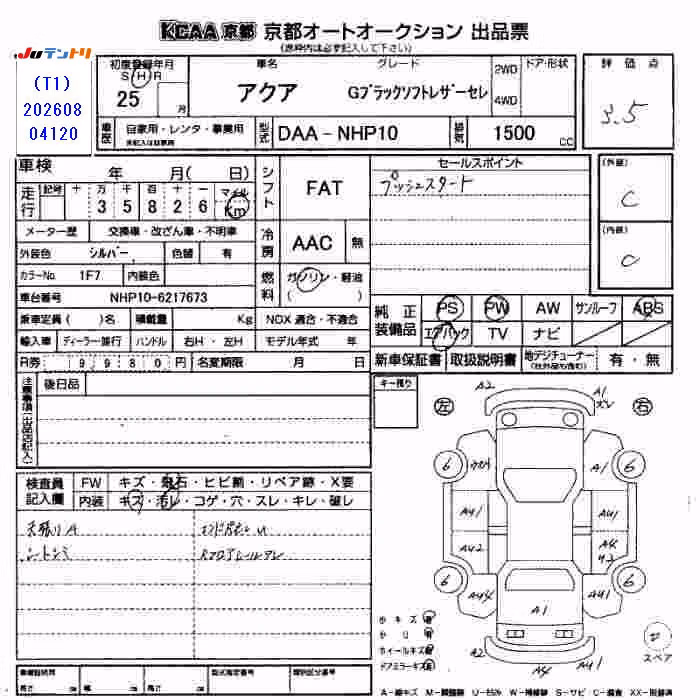 KCAA 京都 京都オートオークション 出品票
(赤枠内は必ず記入して下さい)
JUテントリ
(T1)
202608
04120
初度登録年月
S H R
25 月
車名
アクア
グレード
Gブラックソフトレザーセレ
2WD
4WD
ドア・形状
評価点
3.5
車歴
自家用・レンタ・事業用
未記入は自家用
型式
DAA-NHP10
排気
1500 CC
車検 年 月( 日)
シフト
FAT
セールスポイント
プッシュスタート
(外装)
C
(内装)
C
走行
記号 十 万 千 百 十 一
3 5 8 2 6
マイル
Km
メーター歴 交換車・改ざん車・不明車
冷房
AAC 無
外装色 シルバー 色替 有
カラーNo. 1F7 内装色
燃料
ガソリン・軽油
( )
車台番号 NHP10-6217673
乗車定員 ( )名 積載量 Kg NOX 適合・不適合
輸入車 ディーラー・並行 ハンドル 右H・左H モデル年式 年
R券 9980円 名変期限 月 日
純正装備品
PS PW AW サンルーフ ABS
エアバック TV ナビ
新車保証書 取扱説明書 地デジチューナー 有・無
注意事項(出品店記入)
後日品
キー残り
検査員記入欄
FW キズ・飛石・ヒビ割・リペア跡・X要
内装 キズ・汚レ・コゲ・穴・スレ・キレ・破レ
天張りA
シートシミ
左
右
A2
A1
6
6
A1
A41
A41
A42
A4
6
6
A44
A1
A41
A2
A4
小キズ有
ホイールキズ有
ドアミラーキズ有
スペア
車輌総重量 型式指定番号 類別区分番号
長さ 幅 高さ